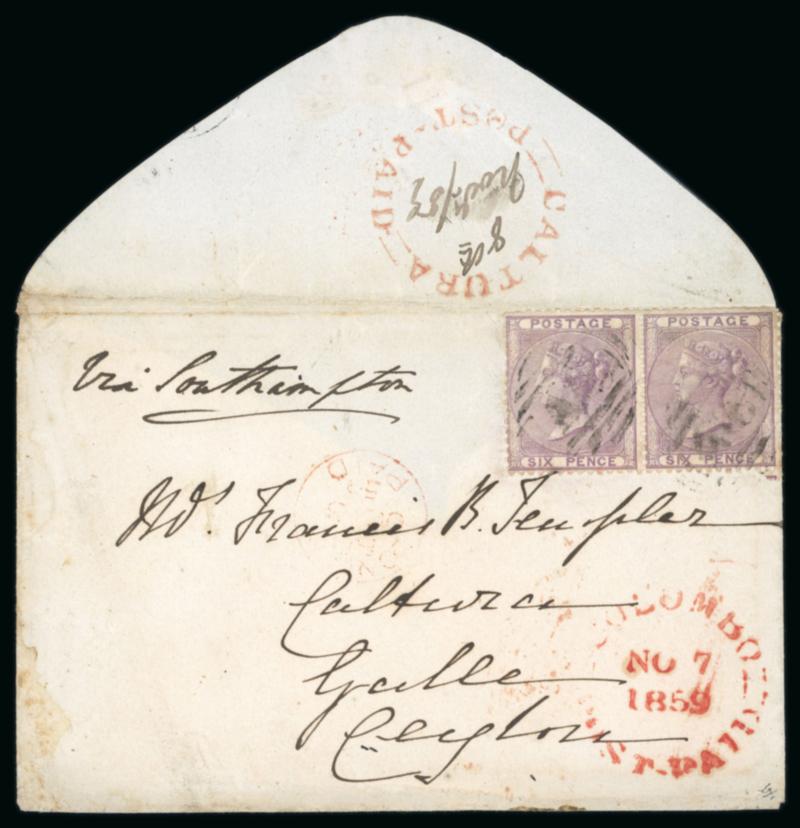 CALTURA
POST-PAID
8th
POSTAGE POSTAGE
SIX PENCE SIX PENCE
Via Southampton
PAID
Mrs. Francis B. Templer
Caltura
Galle
Ceylon
COLOMBO
NO 7
1859